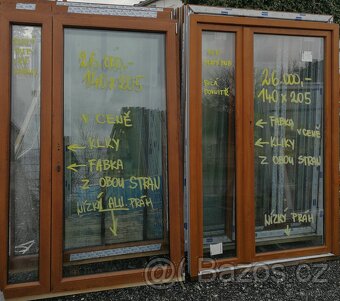 26.000,-
140 x 205
V CENĚ
← KLIKY
← FABKA
Z OBOU STRAN
NÍZKÝ ALU. PRÁH
26.000.-
140 x 205
← FABKA V CENĚ
← KLIKY
Z OBOU STRAN
NÍZKÝ PRÁH
Bazos.cz